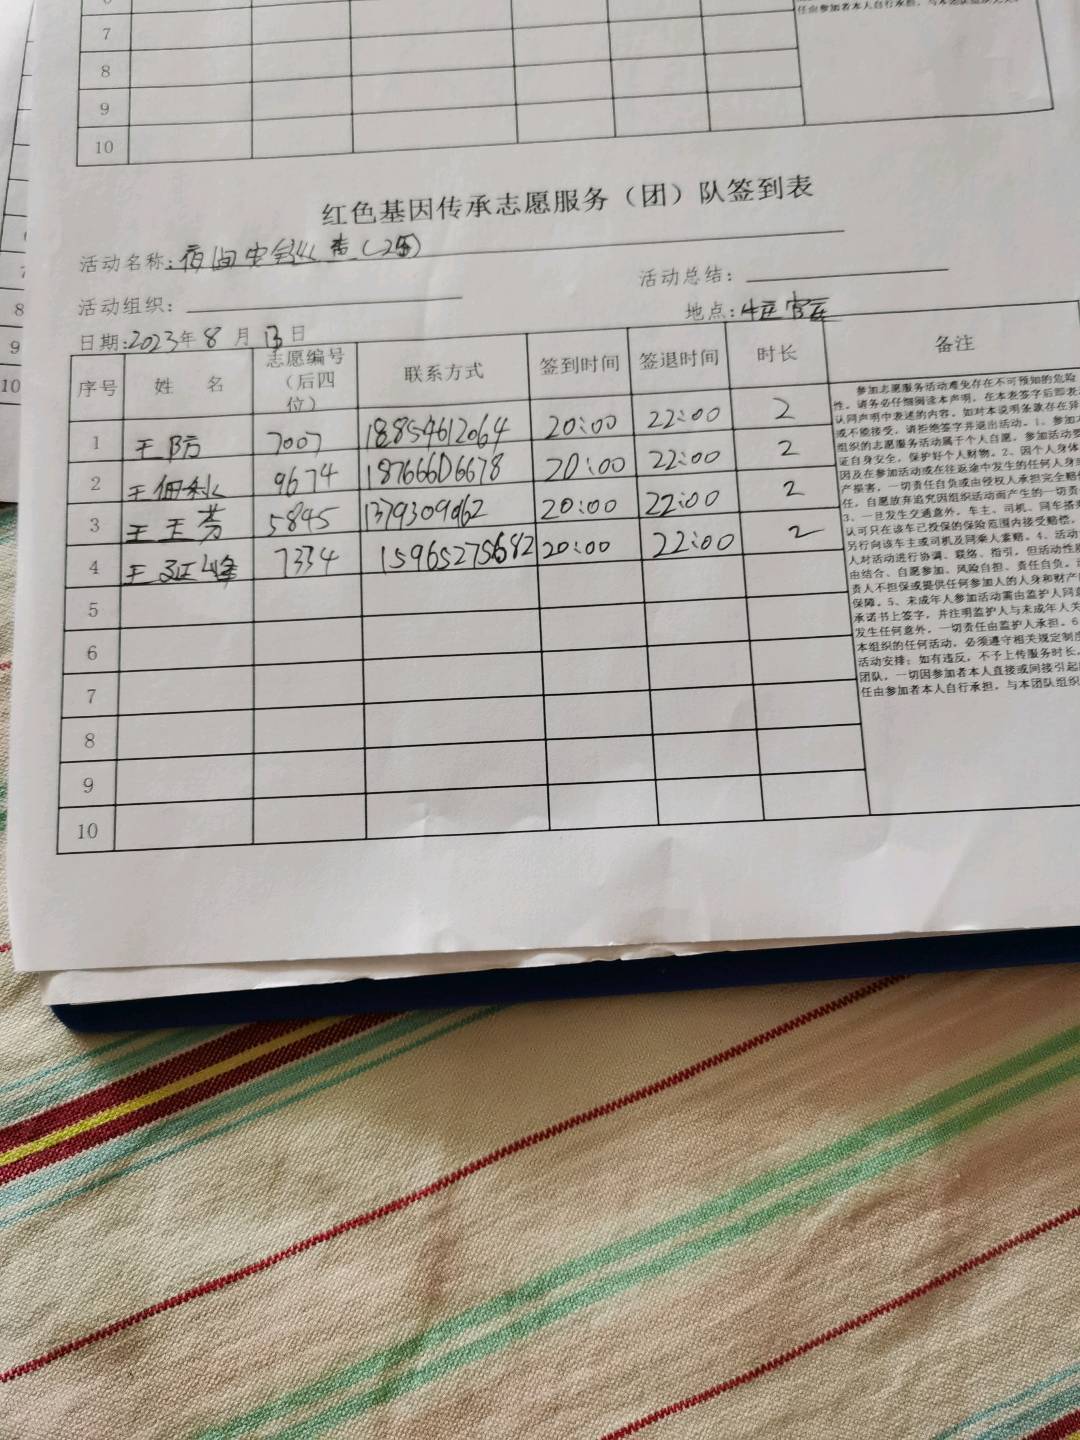 任由参加者本人自行承担，与本团队组织无关。
7
8
9
10
红色基因传承志愿服务（团）队签到表
活动名称：夜间安全巡查（2组）
活动总结：
活动组织：
地点：牛庄官庄
日期：2023年8月13日
序号 姓 名 志愿编号（后四位） 联系方式 签到时间 签退时间 时长 备注
1 王防 7007 18854612064 20:00 22:00 2
2 王佃秋 9674 18766606678 20:00 22:00 2
3 王玉芳 5845 20:00 22:00 2
4 王延峰 7334 15965275682 20:00 22:00 2
5
6
7
8
9
10
参加志愿服务活动难免存在不可预知的危险
性，请务必仔细阅读本声明，在本表签字后即表
认同声明中表述的内容，如对本说明条款存在异
或不能接受，请拒绝签字并退出活动。1、参加
组织的志愿服务活动属于个人自愿，参加活动要
证自身安全，保护好个人财物。2、因个人身体
因及在参加活动或在往返途中发生的任何人身
产损害，一切责任自负或由侵权人承担完全赔
任，自愿放弃追究因组织活动而产生的一切责
3、一旦发生交通意外，车主、司机、同车搭乘
认可只在该车已投保的保险范围内接受赔偿，
另行向该车主或司机及同乘人索赔。4、活动
人对活动进行协调、联络、指引，但活动性质
由结合、自愿参加、风险自担、责任自负，
责人不担保或提供任何参加人的人身和财产
保障。5、未成年人参加活动需由监护人同意
承诺书上签字，并注明监护人与未成年人关
发生任何意外，一切责任由监护人承担。6
本组织的任何活动，必须遵守相关规定制度
活动安排；如有违反，不予上传服务时长，
团队，一切因参加者本人直接或间接引起
任由参加者本人自行承担，与本团队组织
8
9
10